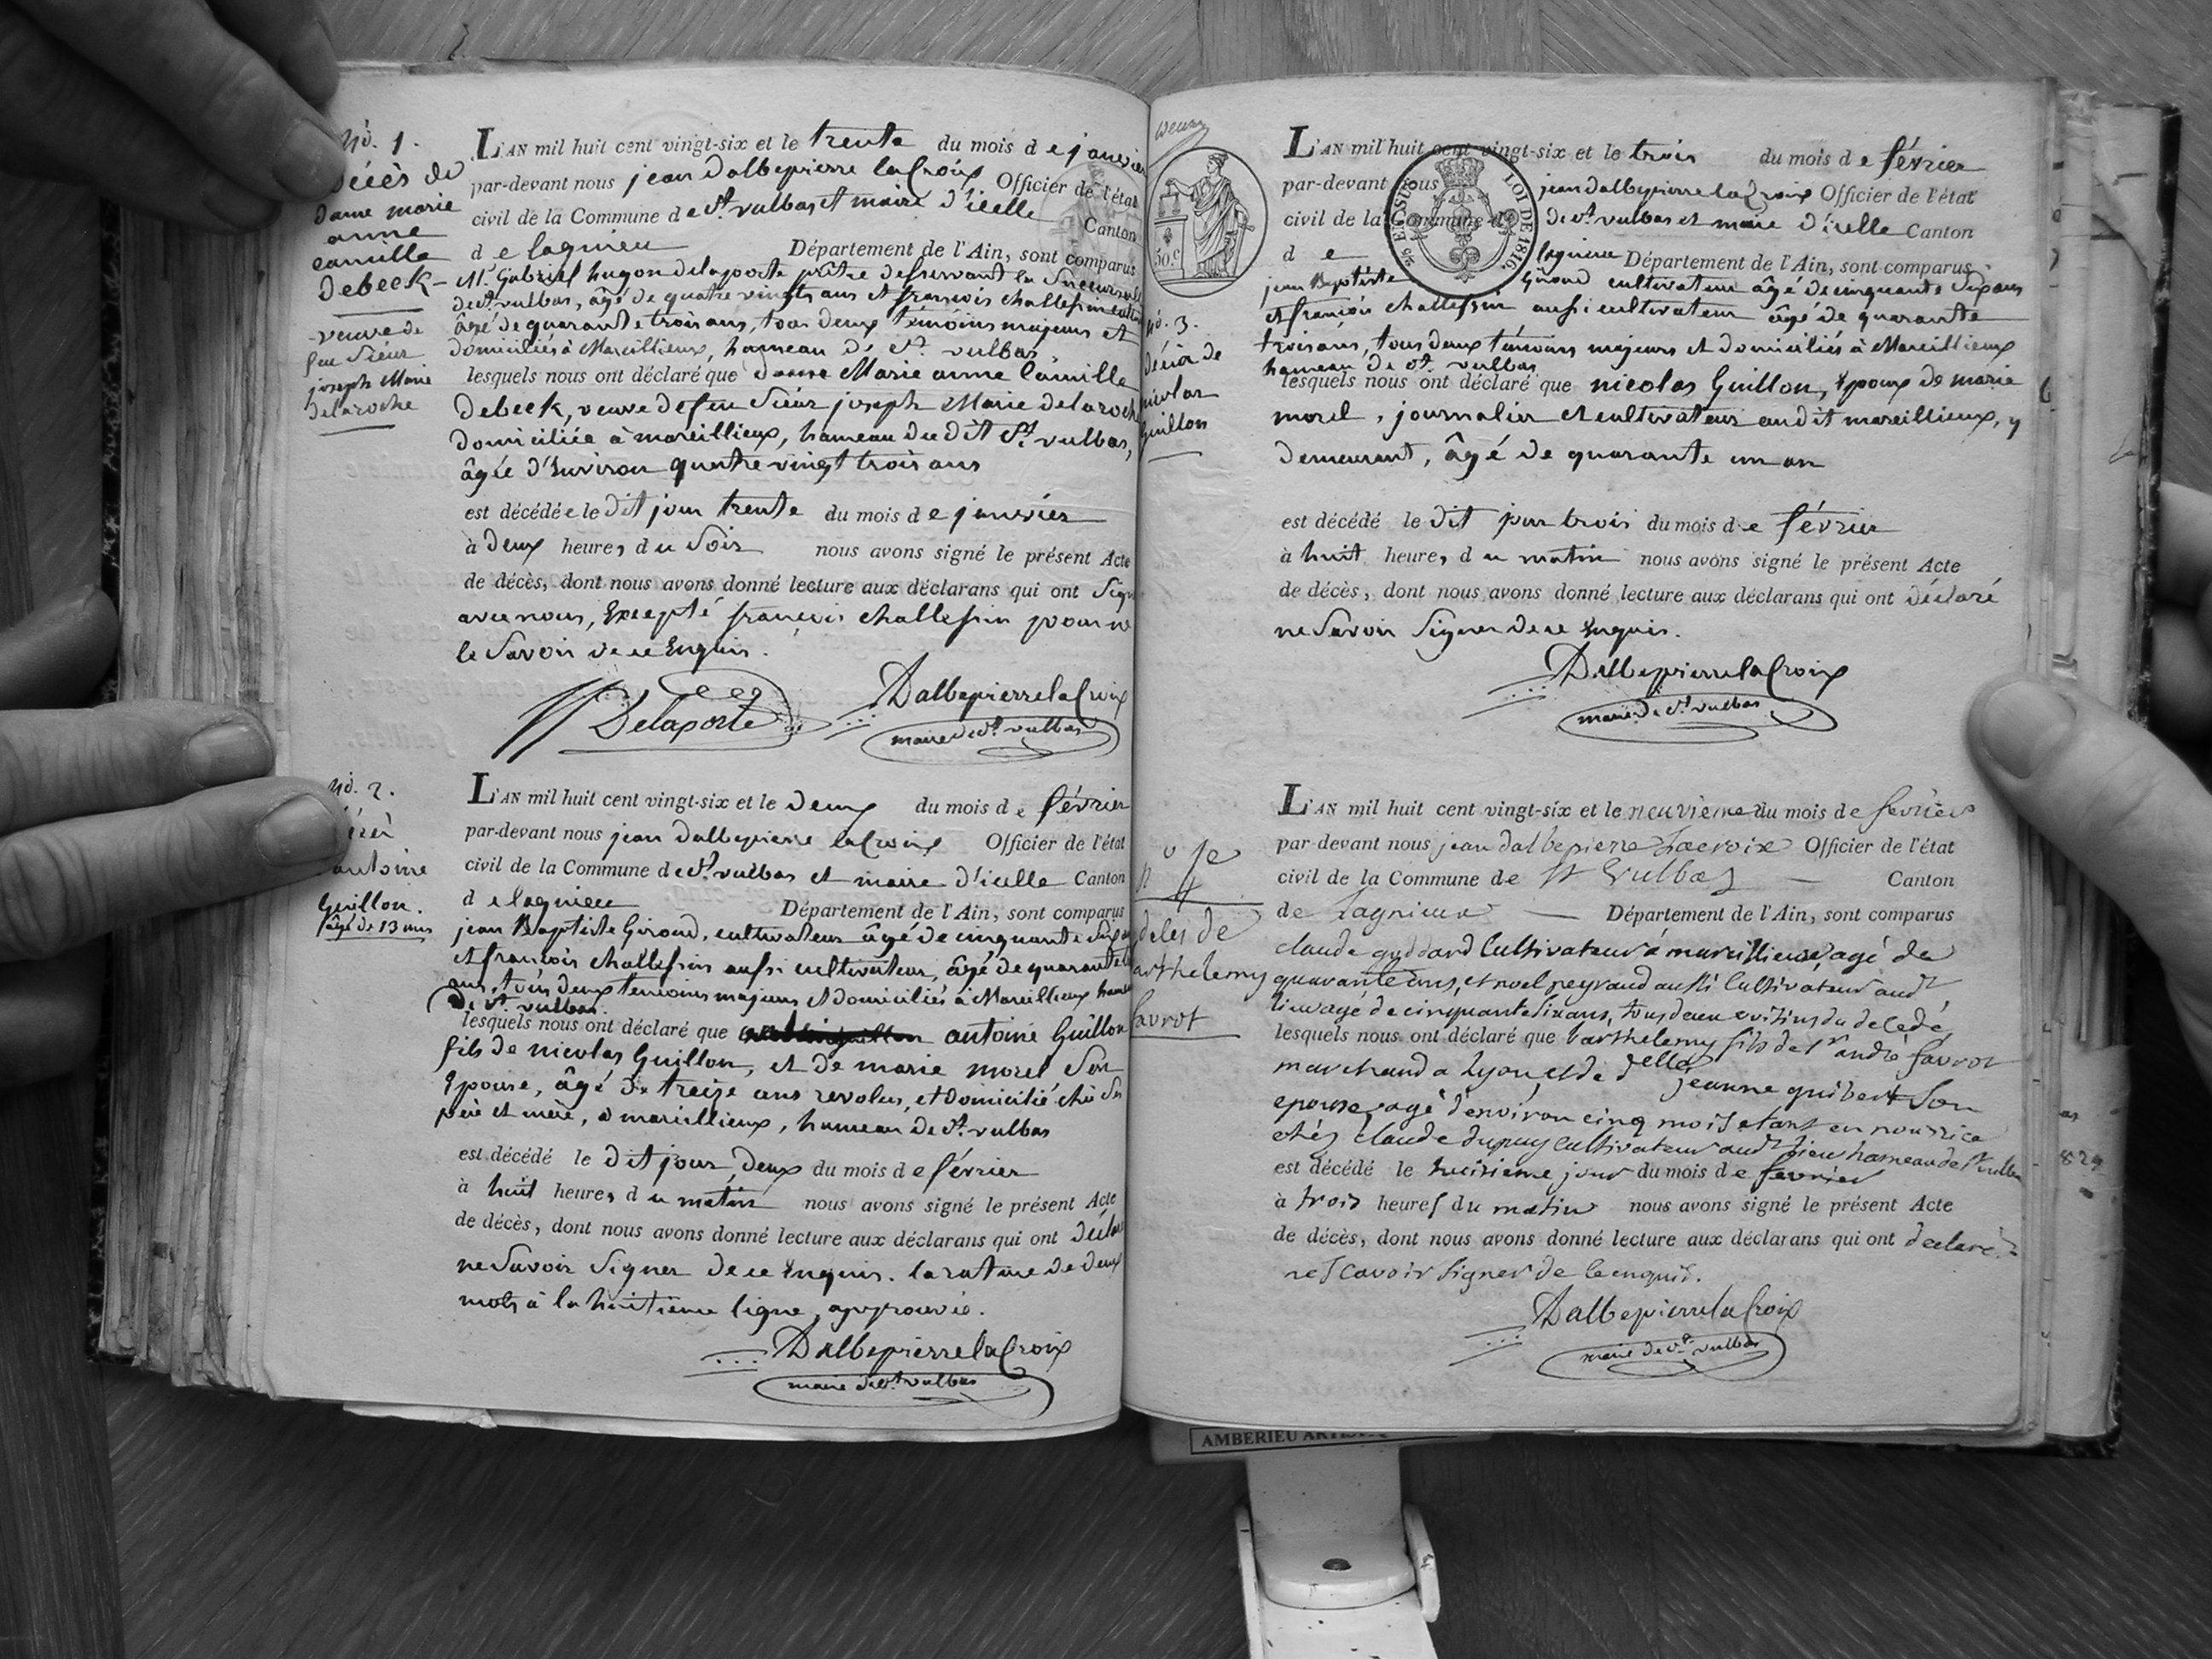 No. 1.
décès de
dame marie
anne
camille
debeck-
veuve de
feu sieur
joseph Marie
delaroche
L'AN mil huit cent vingt-six et le trente du mois de janvier
par-devant nous jean dalbepierre lacroix Officier de l'état
civil de la Commune de St. vulbas et maire d'icelle Canton
de lagnieu Département de l'Ain, sont comparus
Mr. Gabriel hugon delaporte prêtre desservant la Succursale
de St. vulbas, âgé de quatre vingts ans et françois challessin
âgé de quarante trois ans, tous deux témoins majeurs et
domiciliés à Marcillieux, hameau de St. vulbas,
lesquels nous ont déclaré que dame Marie anne Camille
debeck, veuve de feu Sieur joseph Marie delaroche
domiciliée à marcillieux, hameau du dit St. vulbas,
âgée d'Environ quatre vingt trois ans
est décédée le dit jour trente du mois de janvier
à deux heures du Soir nous avons signé le présent Acte
de décès, dont nous avons donné lecture aux déclarans qui ont Signé
avec nous, Excepté françois challessin pour ne
le Savoir de ce Enquis.
Delaporte
DalbepierrelaCroix
maire de St. vulbas
No. 2.
antoine
Guillon.
âgé de 13 ans
L'AN mil huit cent vingt-six et le deux du mois de février
par-devant nous jean dalbepierre lacroix Officier de l'état
civil de la Commune de St. vulbas et maire d'icelle Canton
de lagnieu Département de l'Ain, sont comparus
jean Baptiste Giroud, cultivateur âgé de cinquante six ans
et françois challessin aussi cultivateur, âgé de quarante
ans, tous deux temoins majeurs et domiciliés à Marcillieux hameau
de St. vulbas.
lesquels nous ont déclaré que antoine Guillon
fils de nicolas Guillon, et de marie morel Son
Epouse, âgé de treize ans revolus, et domicilié chés Ses
père et mère, à marcillieux, hameau de St. vulbas
est décédé le dit jour deux du mois de février
à huit heures du matin nous avons signé le présent Acte
de décès, dont nous avons donné lecture aux déclarans qui ont déclaré
ne Savoir Signer de ce Enquis. la rature de deux
mots à la huitième ligne, approuvée.
DalbepierrelaCroix
maire de St. vulbas
50.c
No. 3.
décès de
nicolas
Guillon
L'AN mil huit cent vingt-six et le trois du mois de février
par-devant nous jean dalbepierre lacroix Officier de l'état
civil de la Commune de St. vulbas et maire d'icelle Canton
de lagnieu Département de l'Ain, sont comparus
LOI DE 1816
jean Baptiste Giroud cultivateur âgé de cinquante six ans
et françois challessin aussi cultivateur âgé de quarante
trois ans, tous deux témoins majeurs et domiciliés à Marcillieux
hameau de St. vulbas
lesquels nous ont déclaré que nicolas Guillon, Epoux de marie
morel, journalier et cultivateur au dit marcillieux, y
demeurant, âgé de quarante un an
est décédé le dit jour trois du mois de février
à huit heures du matin nous avons signé le présent Acte
de décès, dont nous avons donné lecture aux déclarans qui ont déclaré
ne Savoir Signer de ce Enquis.
DalbepierrelaCroix
maire de St. vulbas
No 4
deces de
barthelemy
favrot
L'AN mil huit cent vingt-six et le neuvieme du mois de fevrier
par devant nous jean dalbepierre Lacroix Officier de l'état
civil de la Commune de St Vulbas Canton
de Lagnieux Département de l'Ain, sont comparus
claude goddard Cultivateur à marcillieux agé de
quarante ans, et noel peyraud aussi Cultivateur audt
lieu agé de cinquante six ans, tous deux voisins du decedé,
lesquels nous ont déclaré que barthelemy fils de Sr andré favrot
marchand a Lyon, et de delle jeanne guibert Son
epouse, agé d'environ cinq mois etant en nourrice
chéz claude dupuy Cultivateur audt lieu hameau de St vulbas
est décédé le huitieme jour du mois de fevrier
à trois heures du matin nous avons signé le présent Acte
de décès, dont nous avons donné lecture aux déclarans qui ont declaré
ne Scavoir signer de ce enquis.
DalbepierrelaCroix
maire de St. vulbas
AMBERIEU